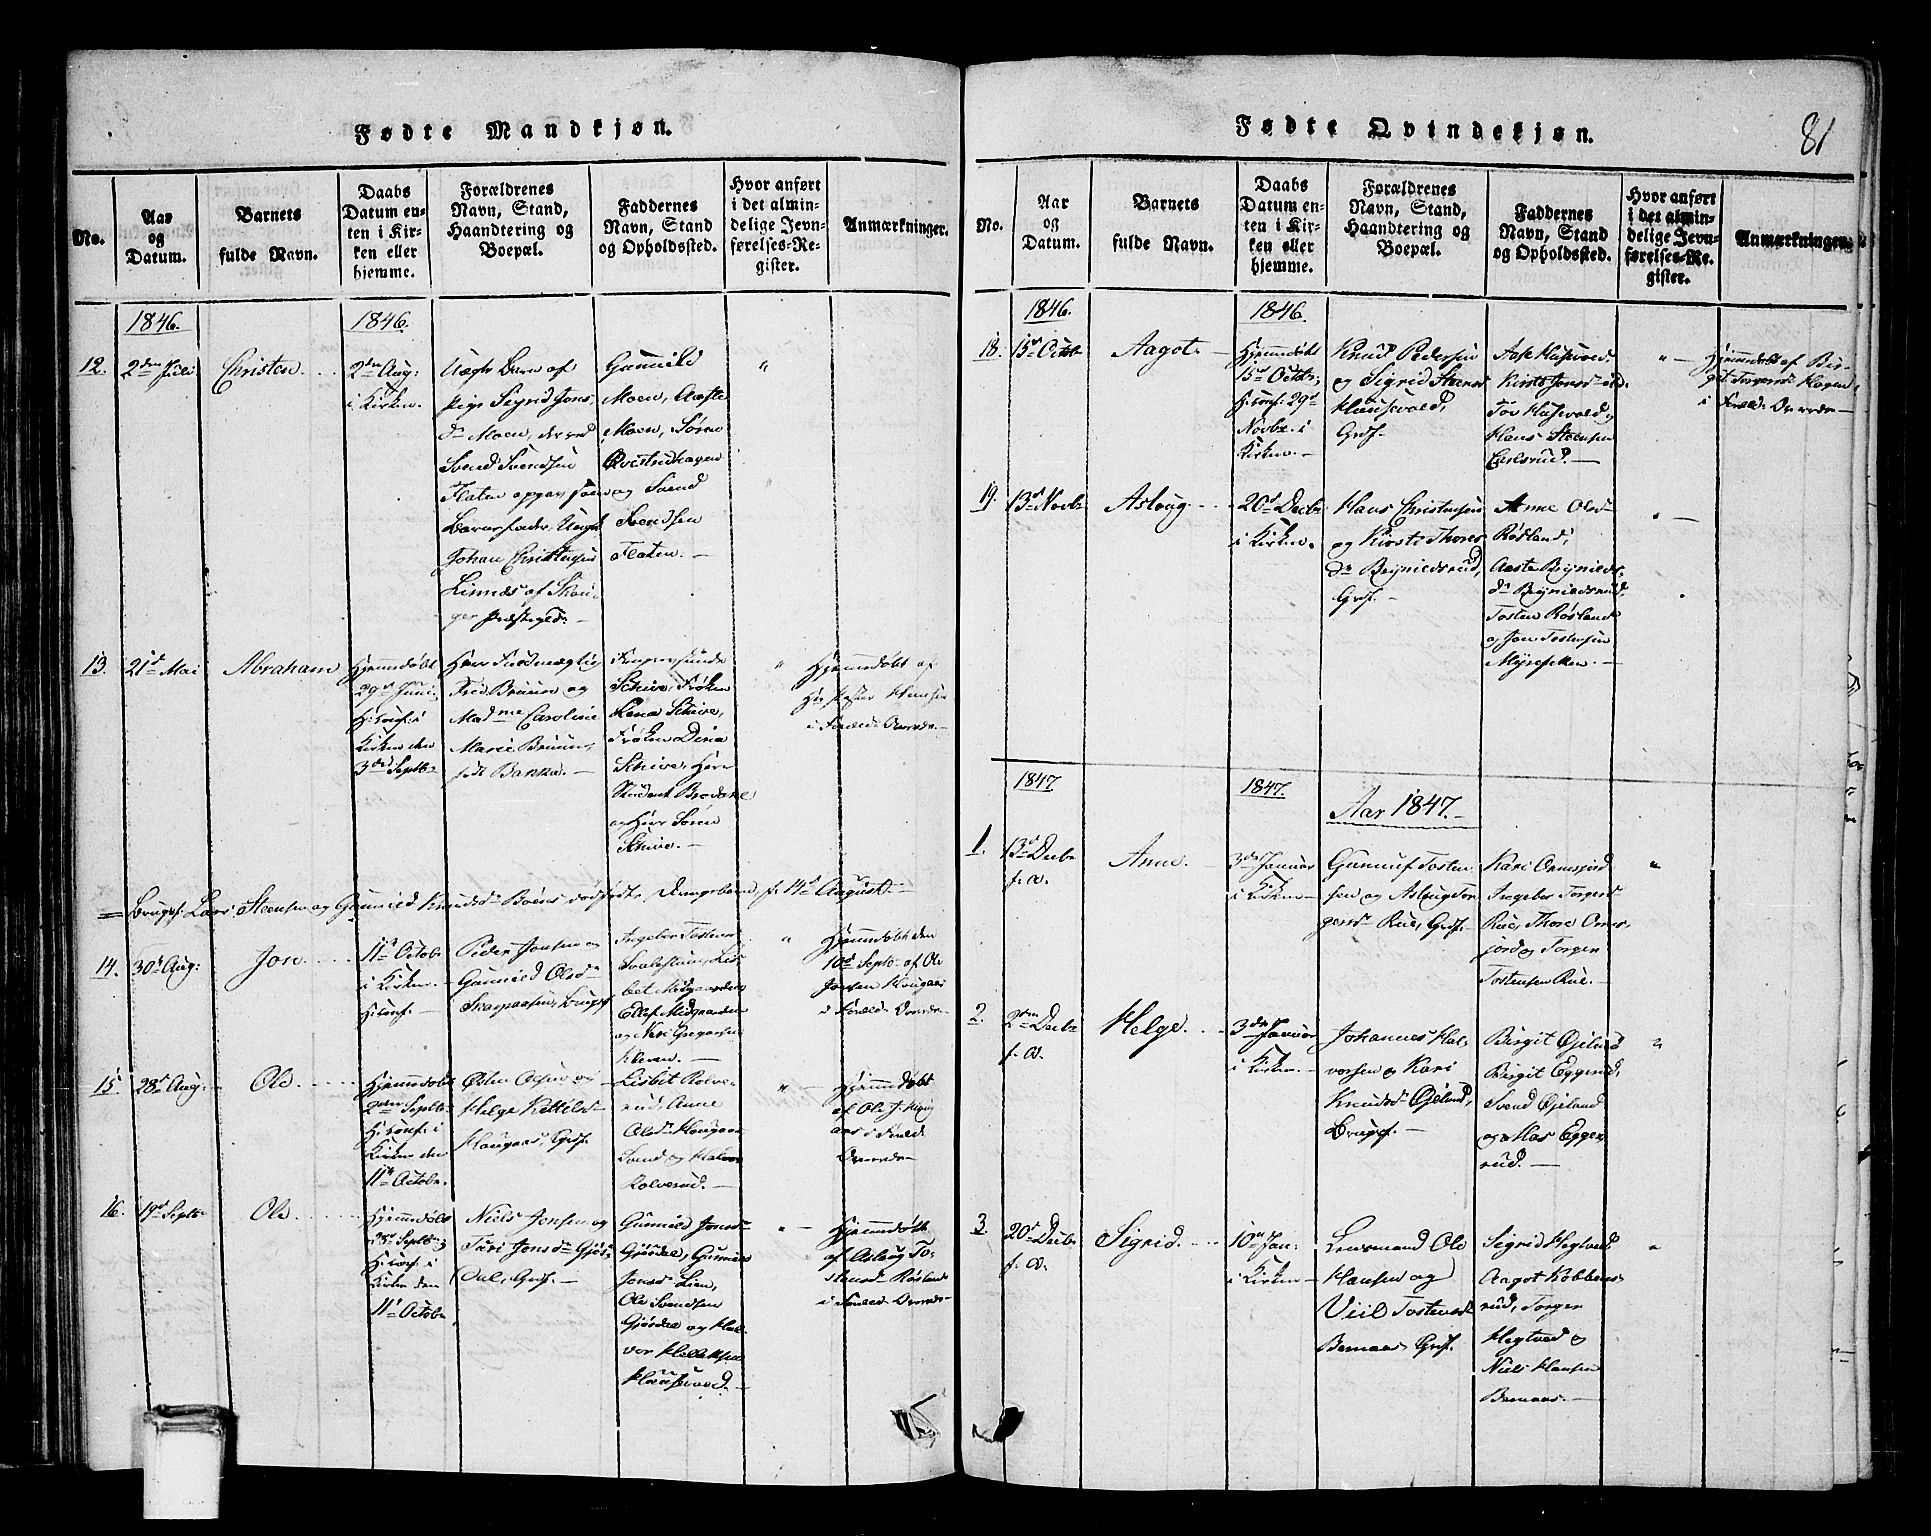 Fødte Mandkjøn.
No.
Aar
og
Datum.
Barnets
fulde Navn.
Daabs
Datum en-
ten i Kir-
ken eller
hjemme.
Forældrenes
Navn, Stand,
Haandtering og
Boepæl.
Faddernes
Navn, Stand
og Opholdssted.
Hvor anført
i det almin-
delige Jevn-
førelses-Re-
gister.
Anmærkninger.
1846.
1846.
12.
2den Juli
Christen
2den Aug:
i Kirken.
Uægte Barn af
Pige Sigrid Jons-
dr Moen, der ved
Svend Svendsen
Flaten opgav som
Barnefader, Ungk.
Johan Christensen
Linnæs af Skou-
ger Præstegjeld.
Gunnild
Moen, Aaste
Moen, Søren
Qvestrudhagen
og Svend
Svendsen
Flaten.
"
13.
21de Mai
Abraham
Hjemmedøbt
29de Juni,
i
Kirken den
3die Septbr
Herr
Fred. Bruun og
Madme Caroline
Marie Bruun,
født Banka.
Schive, Frøken
Lena Schive,
Frøken Dina
Schive, Herr
Student
og Herr Søren
Schive.
"
Hjemmedøbt af
Hr Pastor Hansen
i Foræld: Overvær.
Brugsf. Lars Steensen og Gunnild Knudsdr Boens dødfødte Drengebarn, f. 14de August.
14.
30te Aug:
Jon
11te Octobr
i Kirken.
H: conf.
Peder Jonsen og
Gunnild Olsdr
Skarpaasen, Brugsf
Ingebor Tostensdr
Svalestuen, Lis-
bet Midgaarden
Ellef Midgaarden
og Neri Gregersen
Kleven.
"
Hjemmedøbt den
10de Septbr af Ole
Jonsen Hougaas
i Foræld: Overvær.
15
28de Aug:
Ole
Hjemmedøbt
2den Septbr
H: conf. i
Kirken den
11te Octobr.
Østen Olsen og
Helge Kittilsdr
Hougaas, Grdf.
Lisbit Rolve-
rud, Anne
Olsdr Hougaas
Lund og Halvor
Rolverud.
"
Hjemmedøbt
af Ole J. Houg
aas i Foræld:
Overvær
16.
19de Septbr
Ole
Hjemmedøbt
28de Septbr
H: conf. i
Kirken den
11te Octobr
Niels Jensen og
Turi Jonsdr Gjøs-
dal, Grdf.
Gunnild Jonsdr
Gjøsdal, Gunnild
Jonsdr Lien,
Ole Svendsen
Gjøsdal og Hal-
vor Helleksen
Hausevold.
"
Hjemmedøbt
af Aslaug To-
stensdr Røsland
i Foræld: Overvær
Fødte Qvindekjøn.
81
No.
Aar
og
Datum.
Barnets
fulde Navn.
Daabs
Datum en-
ten i Kir-
ken eller
hjemme.
Forældrenes
Navn, Stand,
Haandtering og
Boepæl.
Faddernes
Navn, Stand
og Opholdssted.
Hvor anført
i det almin-
delige Jevn-
førelses-Re-
gister.
Anmærkninger.
1846.
1846.
18.
15de Octobr
Aagot
Hjemmedøbt
15de Octobr,
H: conf. 29de
Novbr i
Kirken.
Knud Pedersen
og Sigrid Steensdr
Hausevold,
Grdf.
Aase Hausevold,
Kirsti Jonsdr ibid.
Tov Hausevold og
Hans Steensen
"
Hjemmedøbt af Bir-
git Torgersdr Hagen
i Foræld: Overvær
19.
13de Novbr
Aslaug
20de Decbr
i Kirken.
Hans Christensen
og Kirsti Thores-
dr Beinledsrud,
Grdf.
Anne Olsdr
Røsland,
Aaste
Tosten Røsland
og Jon Tostensen
Myrestken.
"
1847
1847.
Aar 1847.
1.
13de Decbr
f. A.
Anne
3die Januar
i Kirken
Gunnuf Tosten-
sen og Aslaug Tor-
gersdr Rue, Grdf.
Kari Ormsjord
Ingebor Torgersdr
Rue, Thore Orms-
jord og Torger
Tostensen Rue.
"
2.
2den Decbr
f. A.
Helge
3die Januar
i Kirken
Johannes Hal-
vorsen og Kari
Knudsdr Øjelund,
Brugsf.
Birgit Øjelund
Birgit Eggerud,
Svend Øjelund
og Aas Egge-
rud.
"
3.
20de Decbr
f. A.
Sigrid
10de Jan:
i Kirken
Lensmand Ole
Hansen og
Viil Tostensdr
Bernaas Grdf.
Sigrid Hegtved
Aagot Kobbers-
rud, Torger
Hegtved og
Niels Hansen
Bernaas.
"